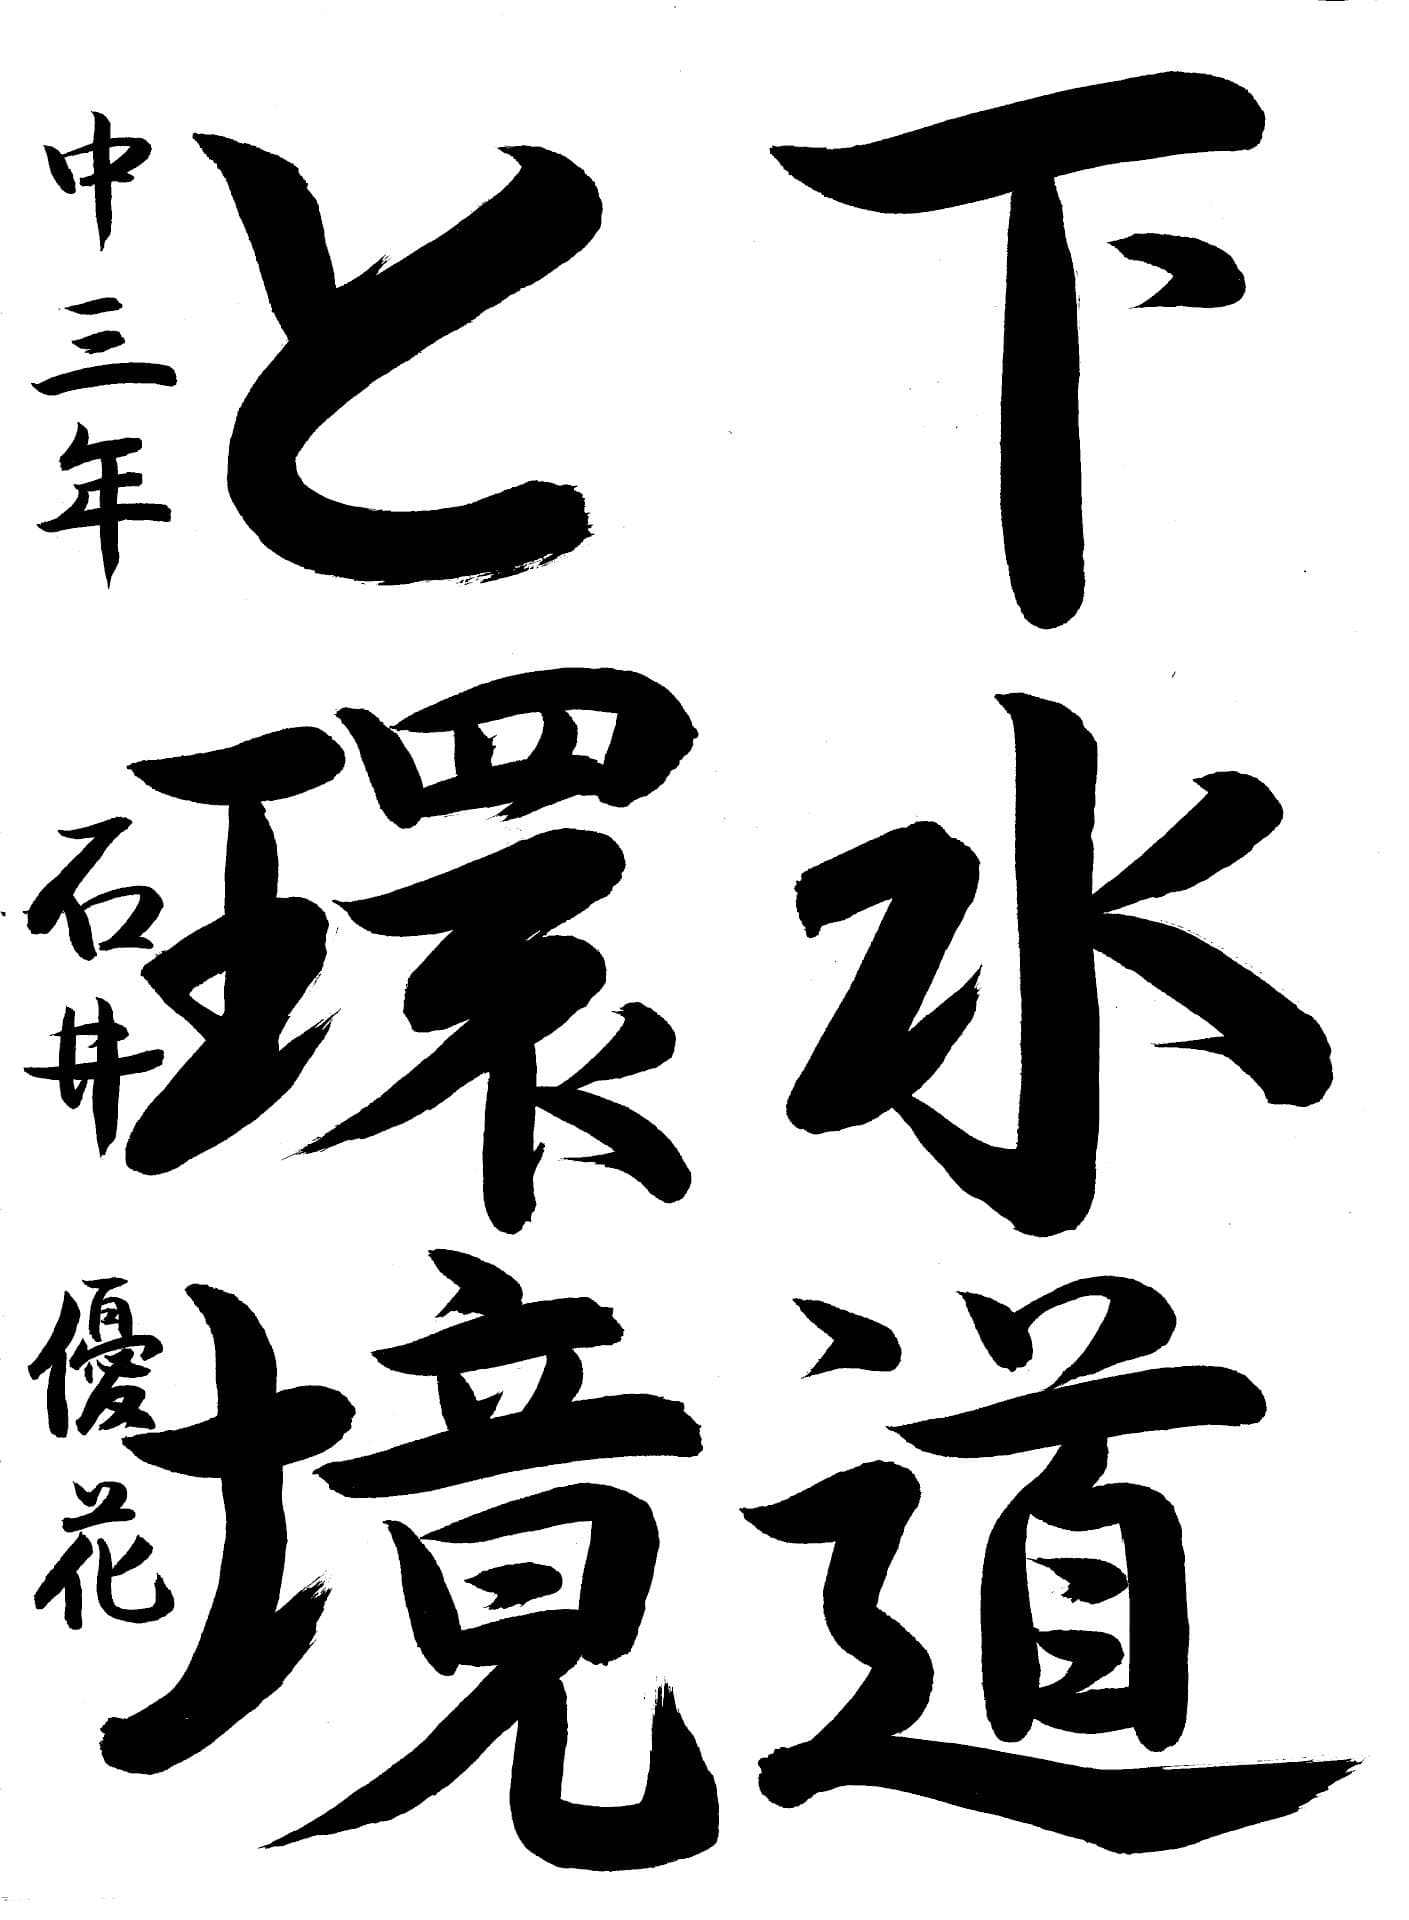 下水道
と環境
中三年 石井 優花